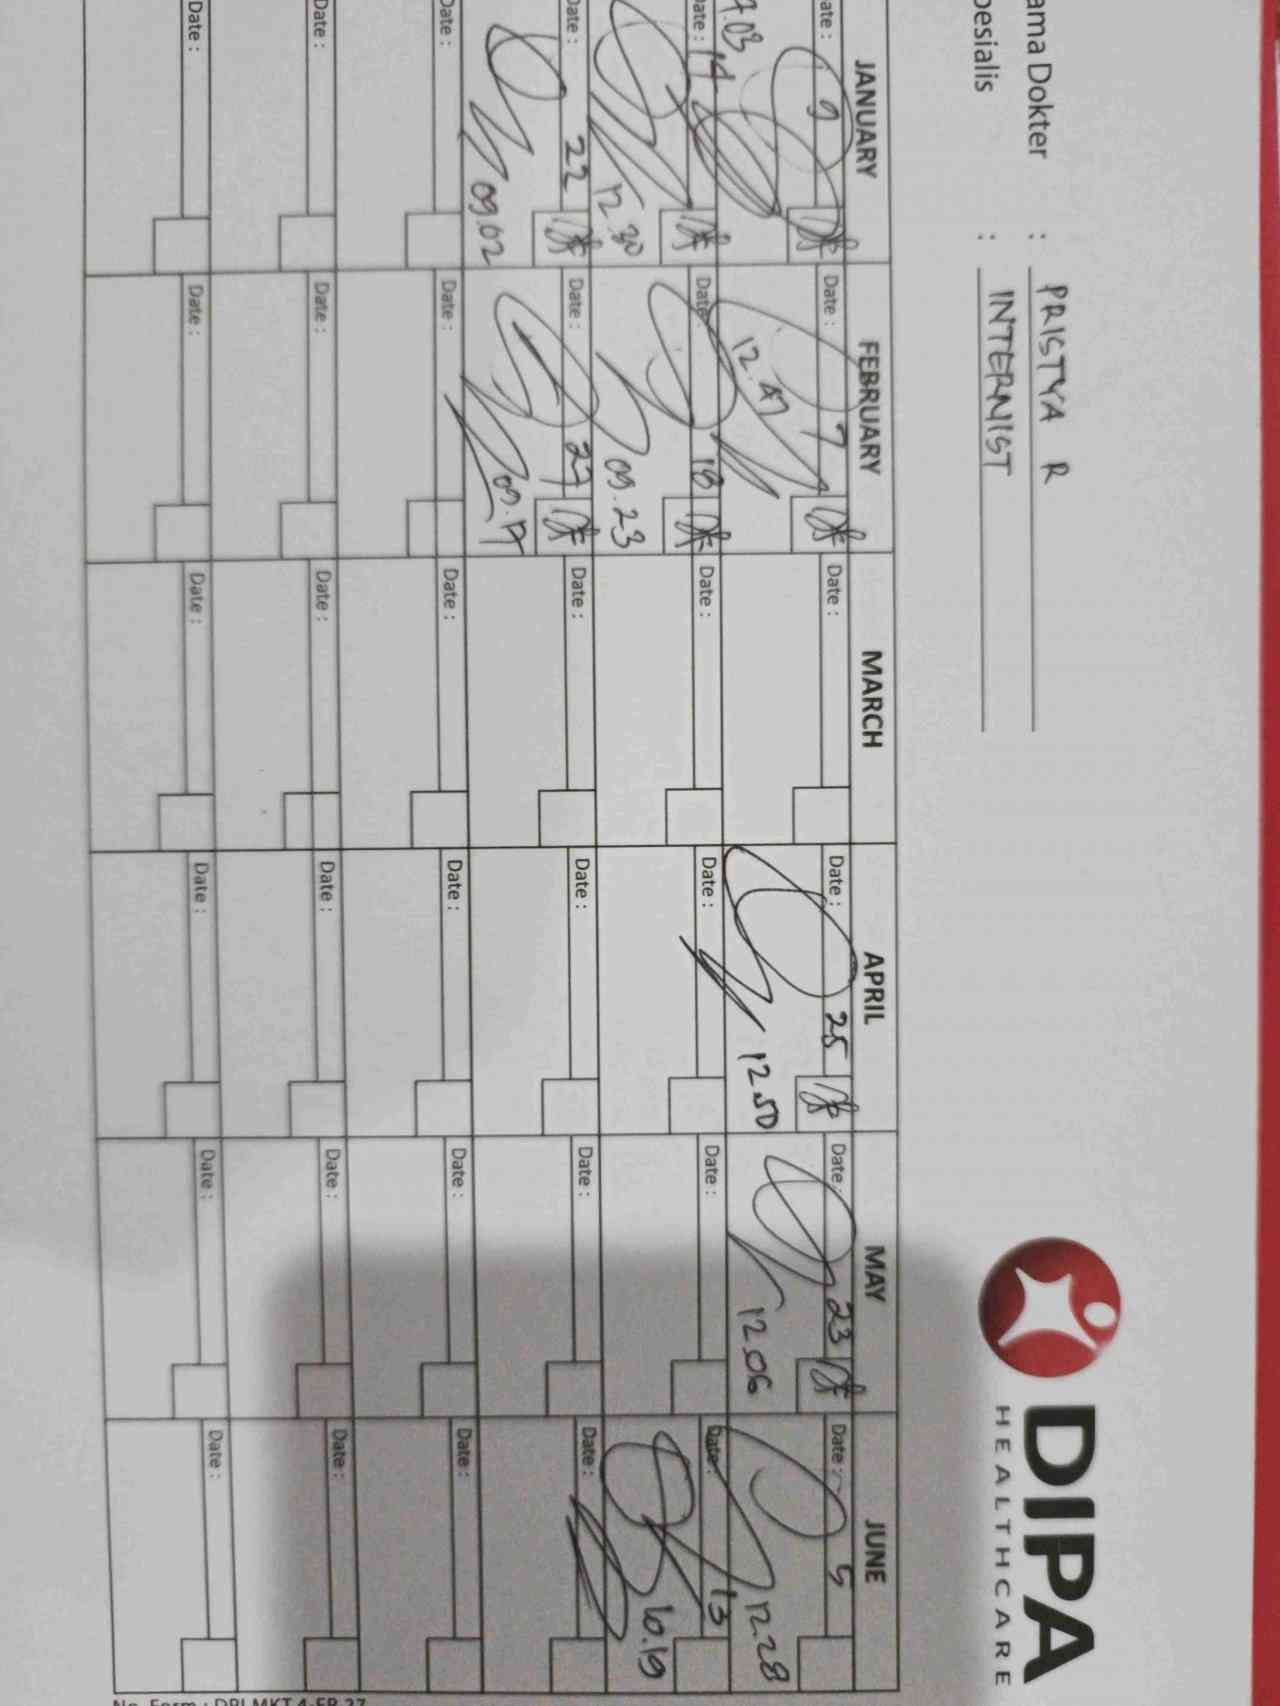 ama Dokter : PRISTYA R
pesialis : INTERNIST
DIPA
HEALTHCARE
JANUARY FEBRUARY MARCH APRIL MAY JUNE
ate : 9 Date : 7 Date : Date : 25 Date : 23 Date : 5
12.47 12.50 12.06 12.28
ate : 14 Date : 18 Date : Date : Date : Date : 13
12.30 09.23 10.19
Date : 22 Date : 27 Date : Date : Date : Date :
09.02 09.17
Date : Date : Date : Date : Date : Date :
Date : Date : Date : Date : Date : Date :
Date : Date : Date : Date : Date : Date :
No. Form : DPI.MKT.4-FR.27